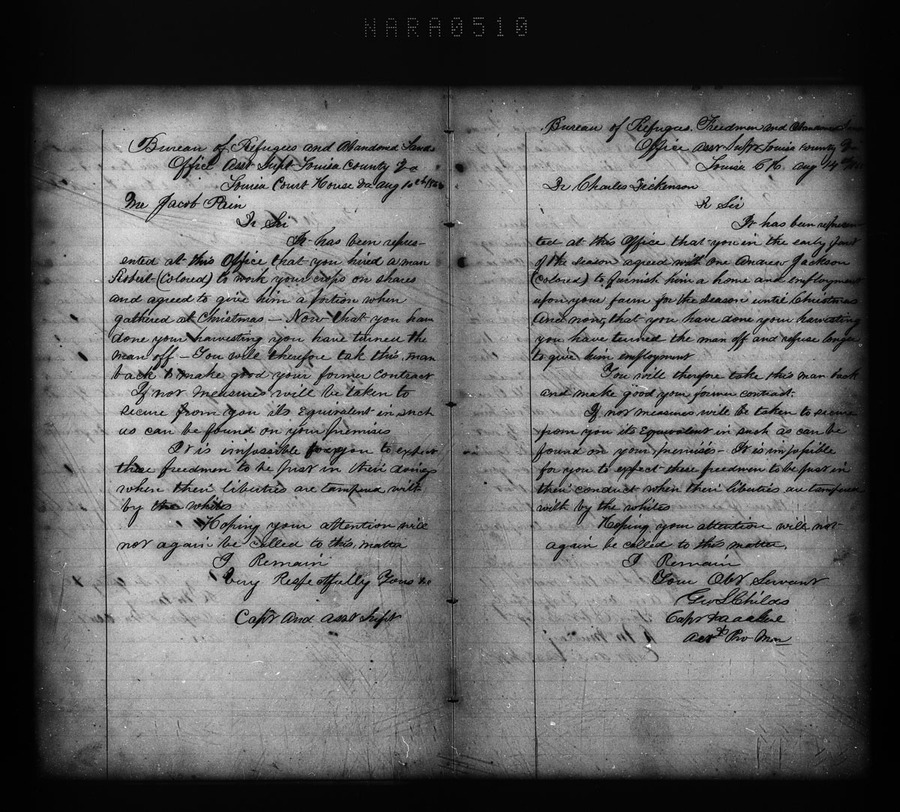 NARA0510
Bureau of Refugees and Abandoned Lands
Office Asst Supt Louisa County Va
Louisa Court House Va Aug
Mr Jacob
Dr Sir
It has been repres-
ented at this Office that you hired a man
Robert (Colored) to work your crops on shares
and agreed to give him a portion when
gathered at Christmas — Now that you have
done your harvesting you have turned the
man off — You will therefore tak this man
back & make good your former contract
If not measures will be taken to
secure from you its Equivalent in such
as can be found on your premises
It is impossible for you to expect
these freedmen to be just in their doings
when their liberties are tampered with
by the whites
Hoping your attention will
not again be called to this matter
I Remain
Very Respectfully Yours &c
Capt and Asst Supt
Bureau of Refugees Freedmen and Abandoned
Office Asst Supt Louisa County Va
Louisa C.H. Aug 14th
Dr Charles Dickenson
Dr Sir
It has been represen-
ted at this Office that you in the early part
of the season agreed with one Jackson
(Colored) to furnish him a home and employment
upon your farm for the season until Christmas
and now, that you have done your harvesting
you have turned the man off and refuse longer
to give him employment
You will therefore take this man back
and make good your former contract.
If not measures will be taken to secure
from you its Equivalent in such as can be
found on your premises — It is impossible
for you to expect these freedmen to be just in
their conduct when their liberties are tampered
with by the whites
Hoping your attention will not
again be called to this matter,
I Remain
Your Obt Servant
Geo S Childs
Capt
Asst Pro Mar